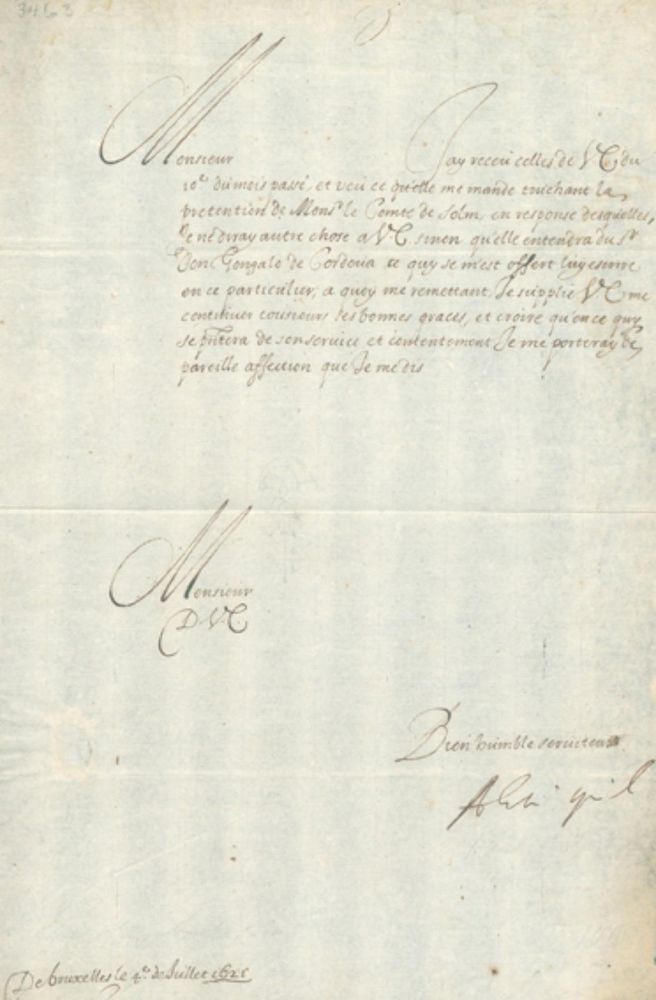 3463
Monsieur
Jay receu celles de V.E. du
10e du mois passé, et veu ce qu'elle me mande touchant la
pretention de Monsr le Comte de Solm, en response desquelles,
Je ne diray autre chose a V.E. sinon qu'elle entendra du Sr
Don Gonzalo de Cordoua ce quy se m'est offert luy escrire
en ce particulier, a quoy me remettant, Je supplie V.E. me
continuer tousiours ses bonnes graces, et croire qu'en ce quy
se offrira de son seruice et contentement Je me porteray de
pareille affection que Je me dis
Monsieur
D V.E.
Bien humble seruiteur
De bruxelles le 4e de Juillet 1621